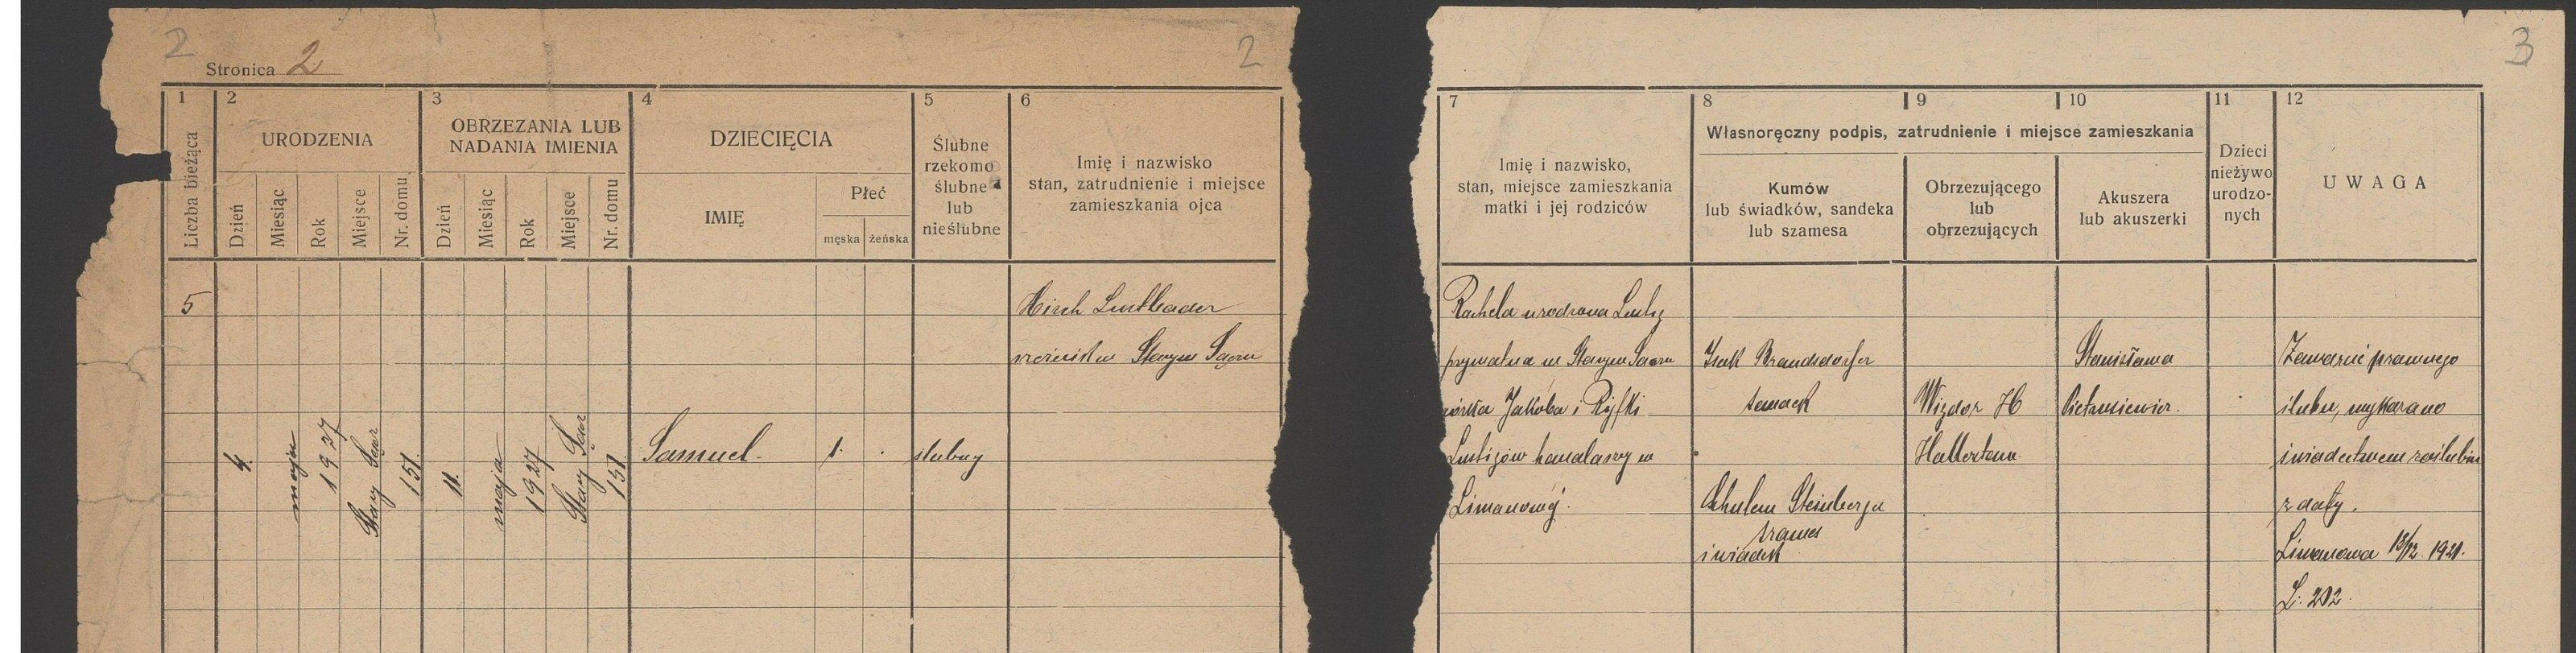 2
Stronica 2
2
1
2
URODZENIA
3
OBRZEZANIA LUB
NADANIA IMIENIA
4
DZIECIĘCIA
5
Ślubne
rzekomo
ślubne
lub
nieślubne
6
Imię i nazwisko
stan, zatrudnienie i miejsce
zamieszkania ojca
Liczba bieżąca
Dzień
Miesiąc
Rok
Miejsce
Nr. domu
Dzień
Miesiąc
Rok
Miejsce
Nr. domu
IMIĘ
Płeć
męska
żeńska
5
4.
maja
1927
Stary Sącz
151.
11.
maja
1927
Stary Sącz
151.
Samuel.
1.
ślubny
Hirsch
w Starym Sączu
3
7
Imię i nazwisko,
stan, miejsce zamieszkania
matki i jej rodziców
8
9
10
Własnoręczny podpis, zatrudnienie i miejsce zamieszkania
Kumów
lub świadków, sandeka
lub szamesa
Obrzezującego
lub
obrzezujących
Akuszera
lub akuszerki
11
Dzieci
nieżywo
urodzo-
nych
12
UWAGA
Rachela urodzona Lustig
prywatna w Starym Sączu
córka Jakóba i Ryfki
Lustigów w
Limanowej.
Isak Brandsdorfer
sandek
Schulem Steinberg
szames
świadek
Wigdor H
Stanisława
Pietrusiewicz.
Zawarcie prawnego
ślubu, wykazano
świadectwem zaślubin
z daty.
Limanowa 13/12. 1921.
L: 202.